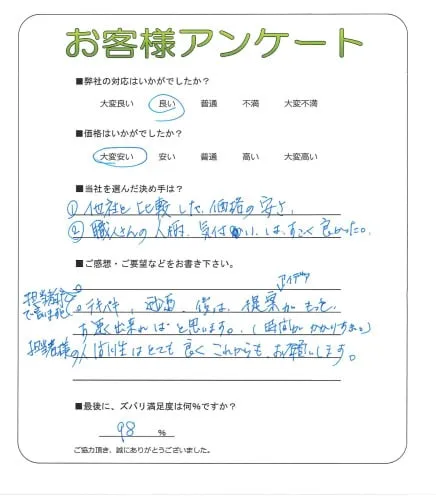 お客様アンケート
■弊社の対応はいかがでしたか?
大変良い 良い 普通 不満 大変不満
■価格はいかがでしたか?
大変安い 安い 普通 高い 大変高い
■当社を選んだ決め手は?
① 他社と比較した、価格の安さ、
② 職人さんの人柄、気付かい、は、すごく良かった。
■ご感想・ご要望などをお書き下さい。
アイデア
提案がもっと
出来ればと思います。(時間がかかりすぎ。)
担当者様の人間性はとても良くこれからも、お願いします。
■最後に、ズバリ満足度は何%ですか?
98 %
ご協力頂き、誠にありがとうございました。